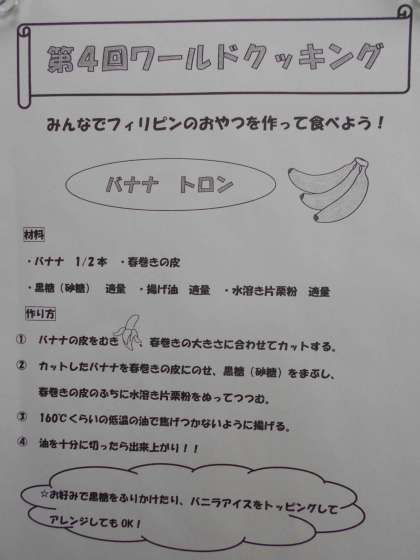 第4回ワールドクッキング
みんなでフィリピンのおやつを作って食べよう！
バナナ　トロン
材料
・バナナ　1/2本　・春巻きの皮
・黒糖（砂糖）　適量　・揚げ油　適量　・水溶き片栗粉　適量
作り方
①　バナナの皮をむき　春巻きの大きさに合わせてカットする。
②　カットしたバナナを春巻きの皮にのせ、黒糖（砂糖）をまぶし、
春巻きの皮のふちに水溶き片栗粉をぬってつつむ。
③　160℃くらいの低温の油で焦げつかないように揚げる。
④　油を十分に切ったら出来上がり！！
☆お好みで黒糖をふりかけたり、バニラアイスをトッピングして
アレンジしてもOK！